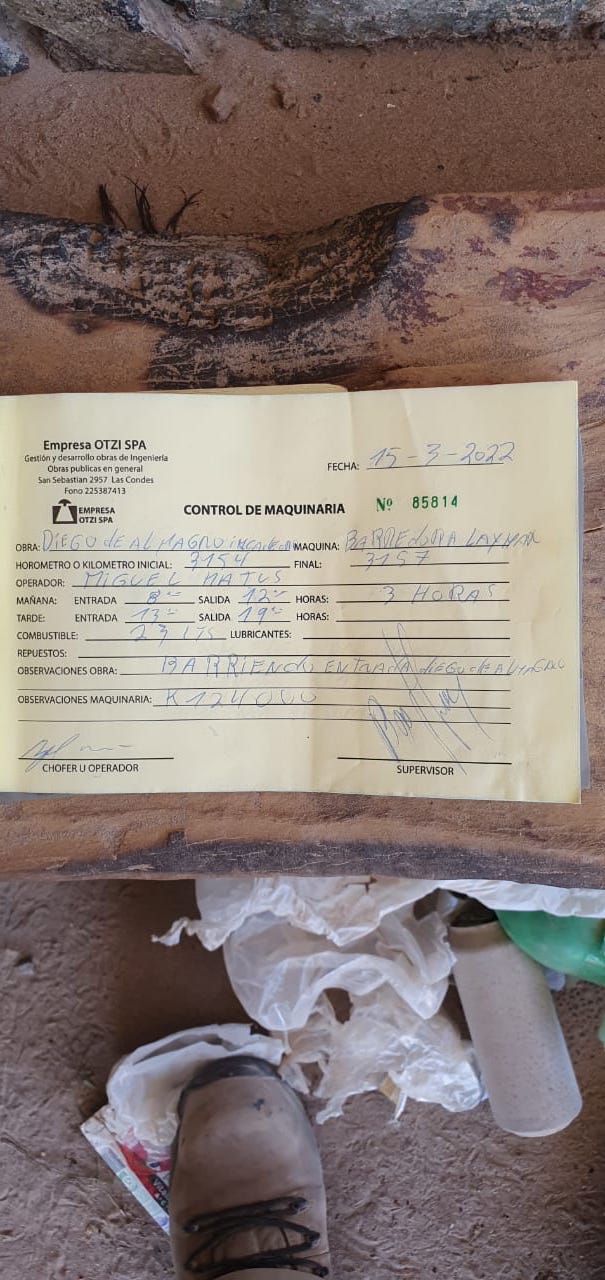 Empresa OTZI SPA
Gestión y desarrollo obras de Ingeniería
Obras publicas en general
San Sebastian 2957 Las Condes
Fono 225387413
FECHA: 15-3-2022
EMPRESA
OTZI SPA
CONTROL DE MAQUINARIA
Nº 85814
OBRA: DIEGO de ALMAGRO MAQUINA: BARREDORA LAYMOR
HOROMETRO O KILOMETRO INICIAL: 3154 FINAL: 3157
OPERADOR: MIGUEL MATUS
MAÑANA: ENTRADA 8 SALIDA 12 HORAS: 3 HORAS
TARDE: ENTRADA 13 SALIDA 19 HORAS:
COMBUSTIBLE: 23 LTS LUBRICANTES:
REPUESTOS:
OBSERVACIONES OBRA: BARRIENDO ENTRADA diego de ALMAGRO
OBSERVACIONES MAQUINARIA: K124000
CHOFER U OPERADOR
SUPERVISOR